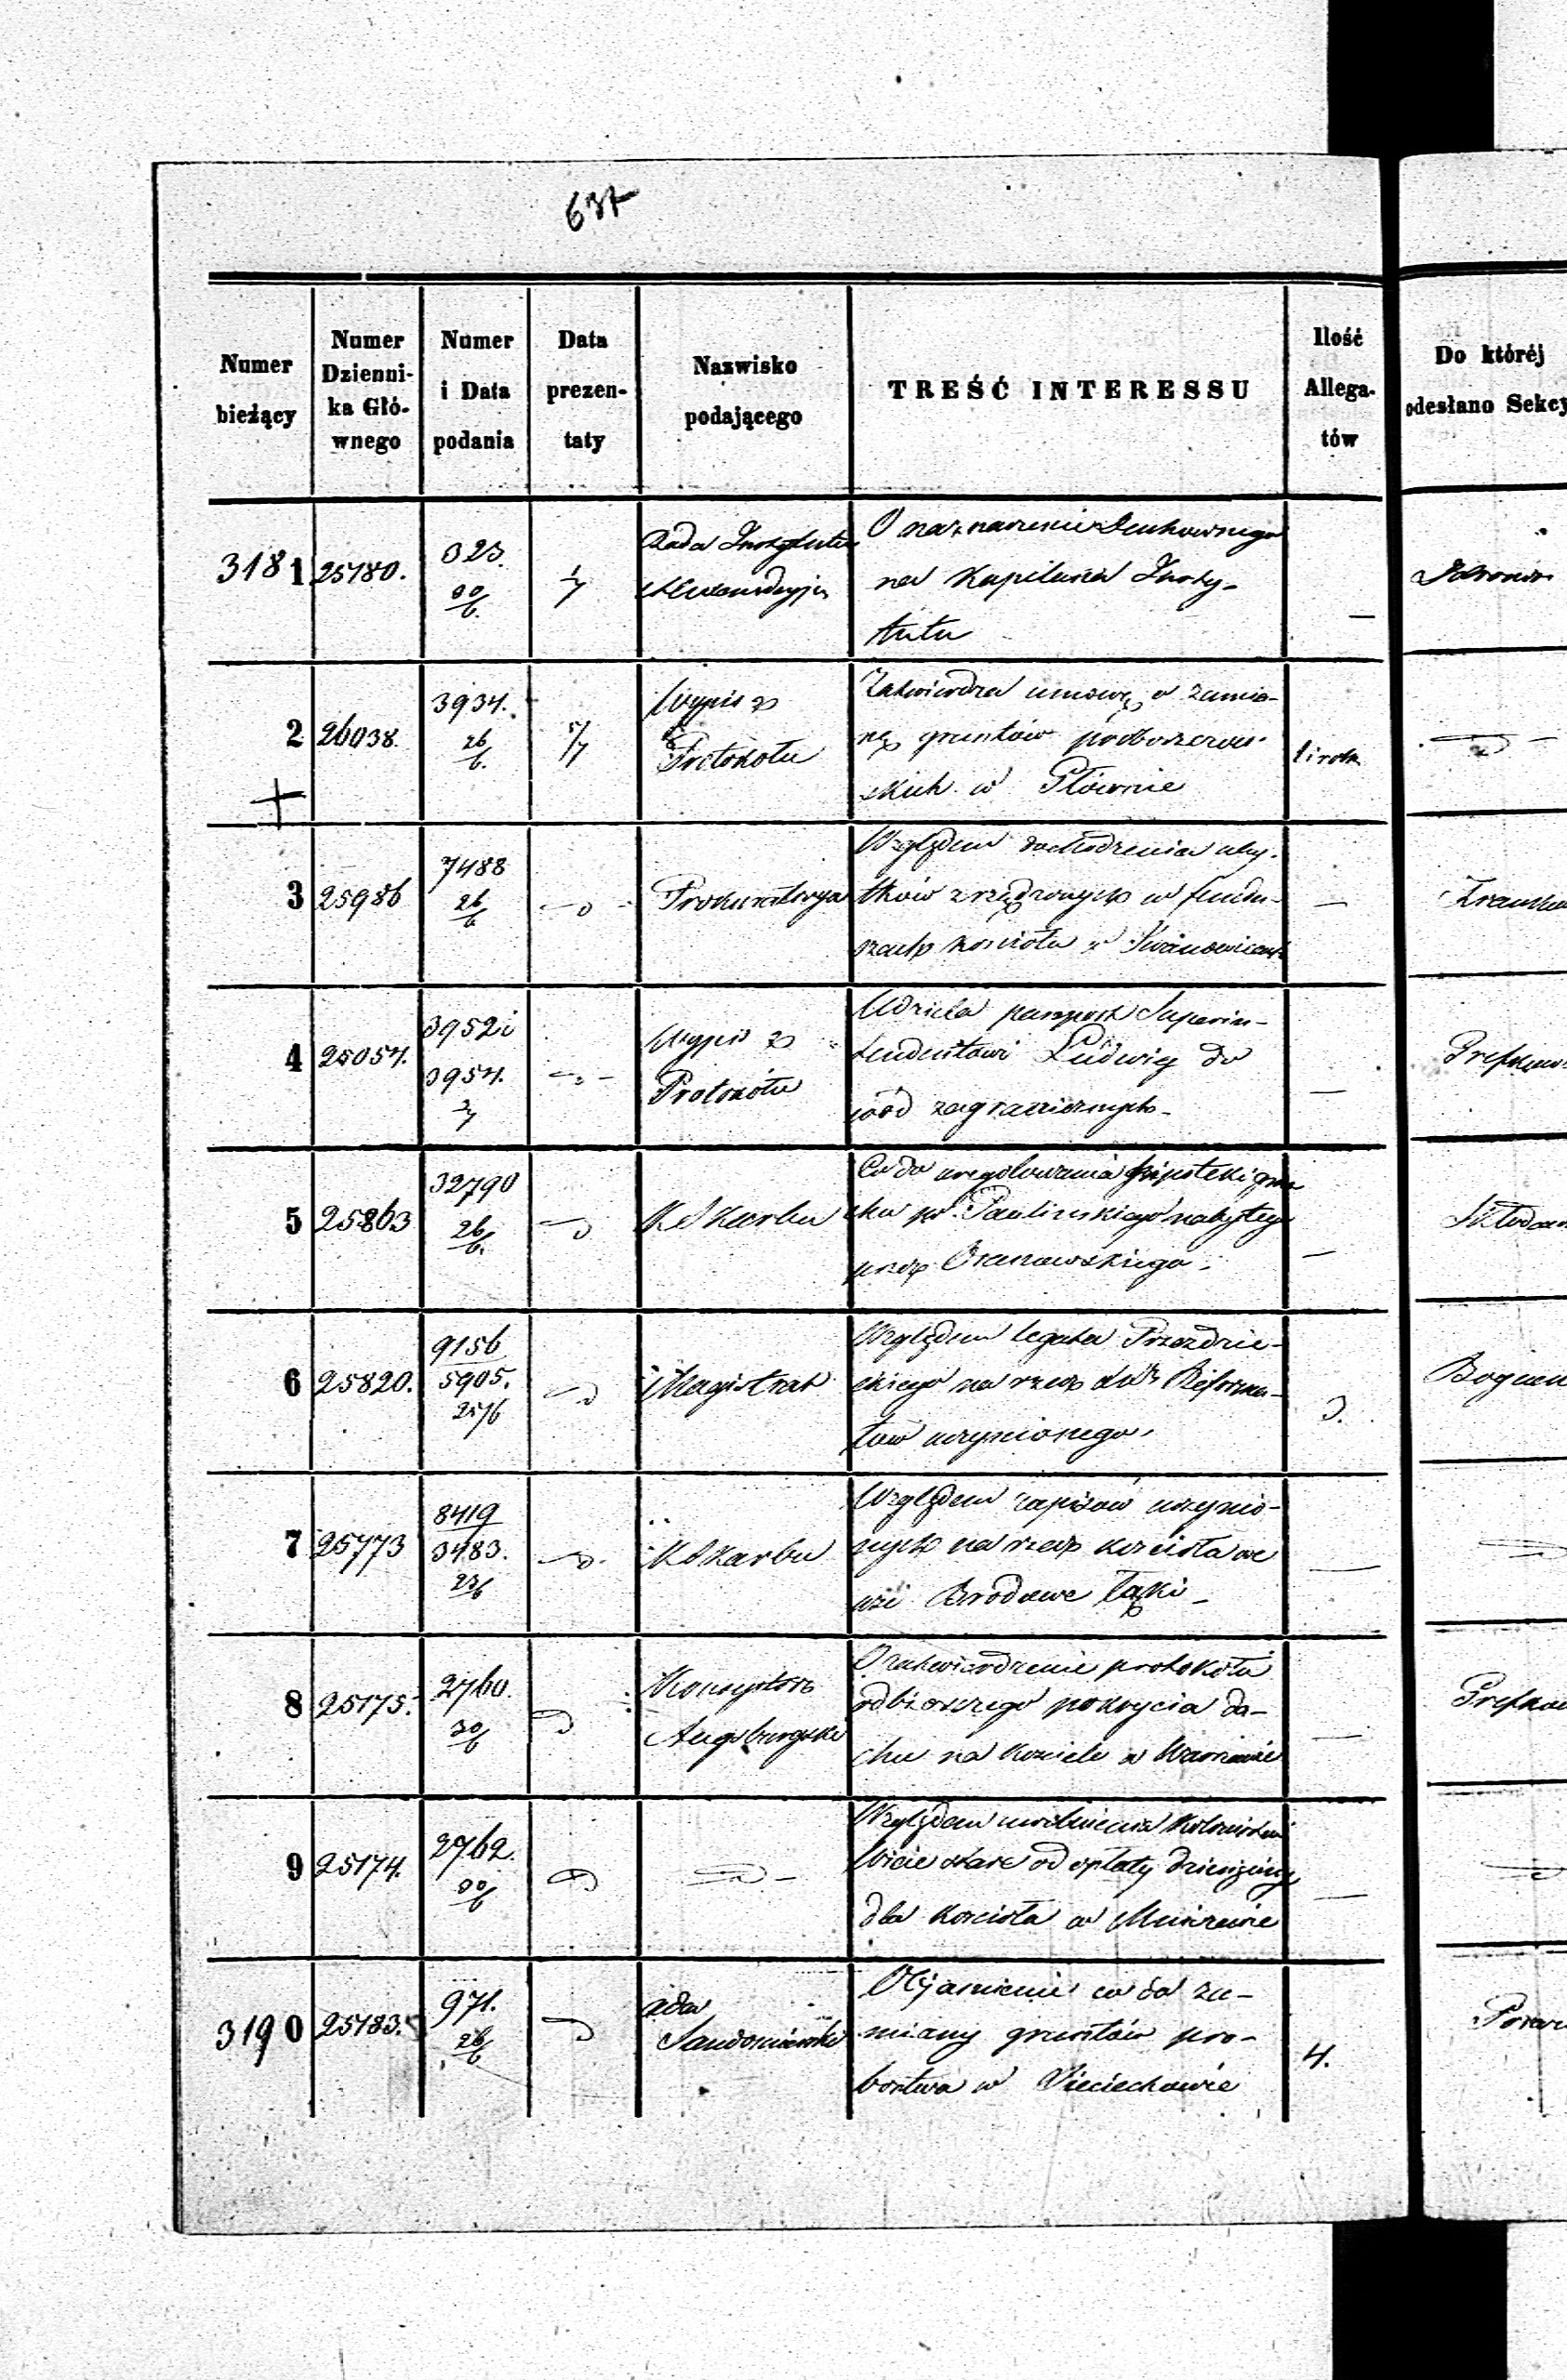 637
Numer bieżący
Numer Dzienni-
ka Głó-
wnego
Numer i Data podania
Data prezen-
taty
Nazwisko podającego
TREŚĆ INTERESSU
Ilość Allega-
tów
Do któréj
odesłano Sekcy
3181 25780. 323. 30/6. 1/7
Rada Instytutu
O naznaczenie Duchownego
na Kapelana Insty-
tutu
—
2 26038. 3934. 26/6. 5/7
Wypis z
Protokołu
Zatwierdza umowę o zamia-
nę gruntów proboszczow-
skich w Głównie
+
3 25986 7488 26/6
Prokuratorya
Względem dochodzenia uby-
tków zrządzonych w fundu-
szach kościoła w Iwanowicach
—
4 25054. 3952 i
3954. 2/7
Wypis z
Protokółu
Udziela paszport Superin-
tendentowi Ludwig do
wód zagranicznych
—
5 25863 32790 26/6.
K Skarbu
Co do uregulowania hipoteki
po Paulińskiego nabytego
przez
—
6 25820. 9156
5905. 25/6
Magistrat
Względem legatu Przezdzie-
ckiego na rzecz Reforma-
tów uczynionego.
3.
Bogucu
7 25773 8419
3483. 23/6
K Skarbu
Względem zapisów uczynio-
nych na rzecz kościoła we
wsi Brodowe Łąki
—
8 25175. 2760. 30/6
Konsystorz
Augsburgski
O zatwierdzenie protokółu
odbiorczego pokrycia da-
chu na kościele w Warszawie
—
9 25174. 2762. 30/6
Względem uwolnienia Kolonistów
od opłaty dziesięciny
dla kościoła w
—
3190 25183. 971. 26/6
Rada
Sandomierska
Objaśnienie co do za-
miany gruntów pro-
bostwa w Sieciechowie
4.